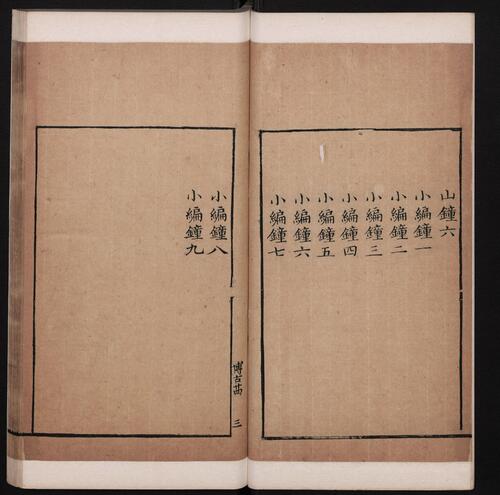 山鐘六
小編鐘一
小編鐘二
小編鐘三
小編鐘四
小編鐘五
小編鐘六
小編鐘七
小編鐘八
小編鐘九
博古
三